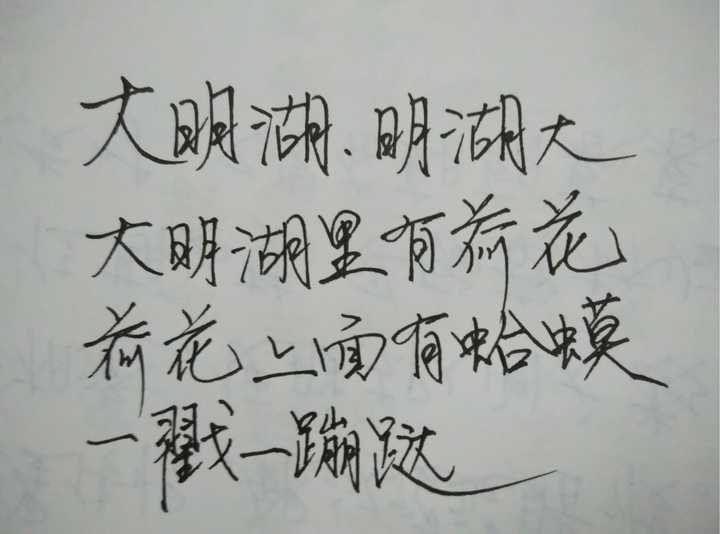 大明湖、明湖大
大明湖里有荷花
荷花上面有蛤蟆
一戳一蹦跶